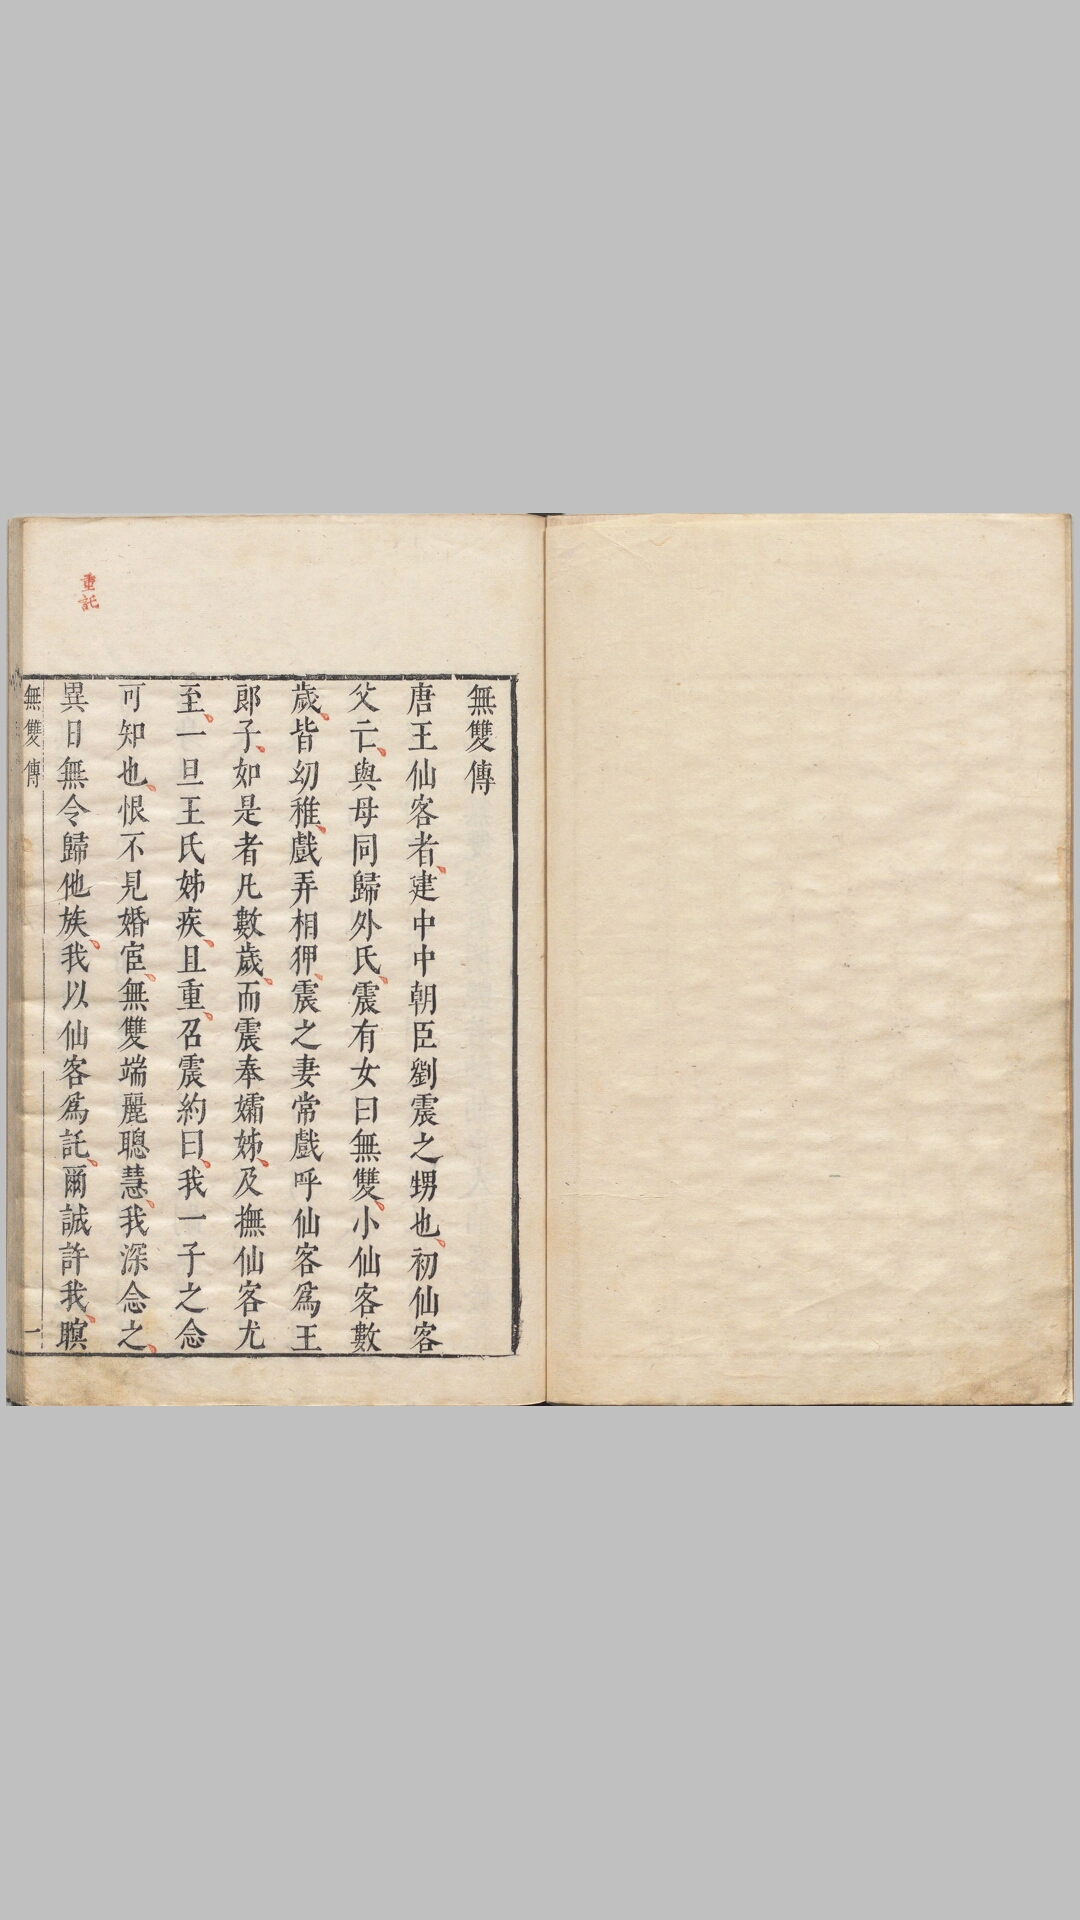 無雙傳
唐王仙客者建中中朝臣劉震之甥也初仙客
父亡與母同歸外氏震有女曰無雙小仙客數
歲皆幼稚戲弄相狎震之妻常戲呼仙客爲王
郎子如是者凡數歲而震奉孀姊及撫仙客尤
至一旦王氏姊疾且重召震約曰我一子之念
可知也恨不見婚宦無雙端麗聰慧我深念之
異日無令歸他族我以仙客爲託爾誠許我瞑
重託
無雙傳
一